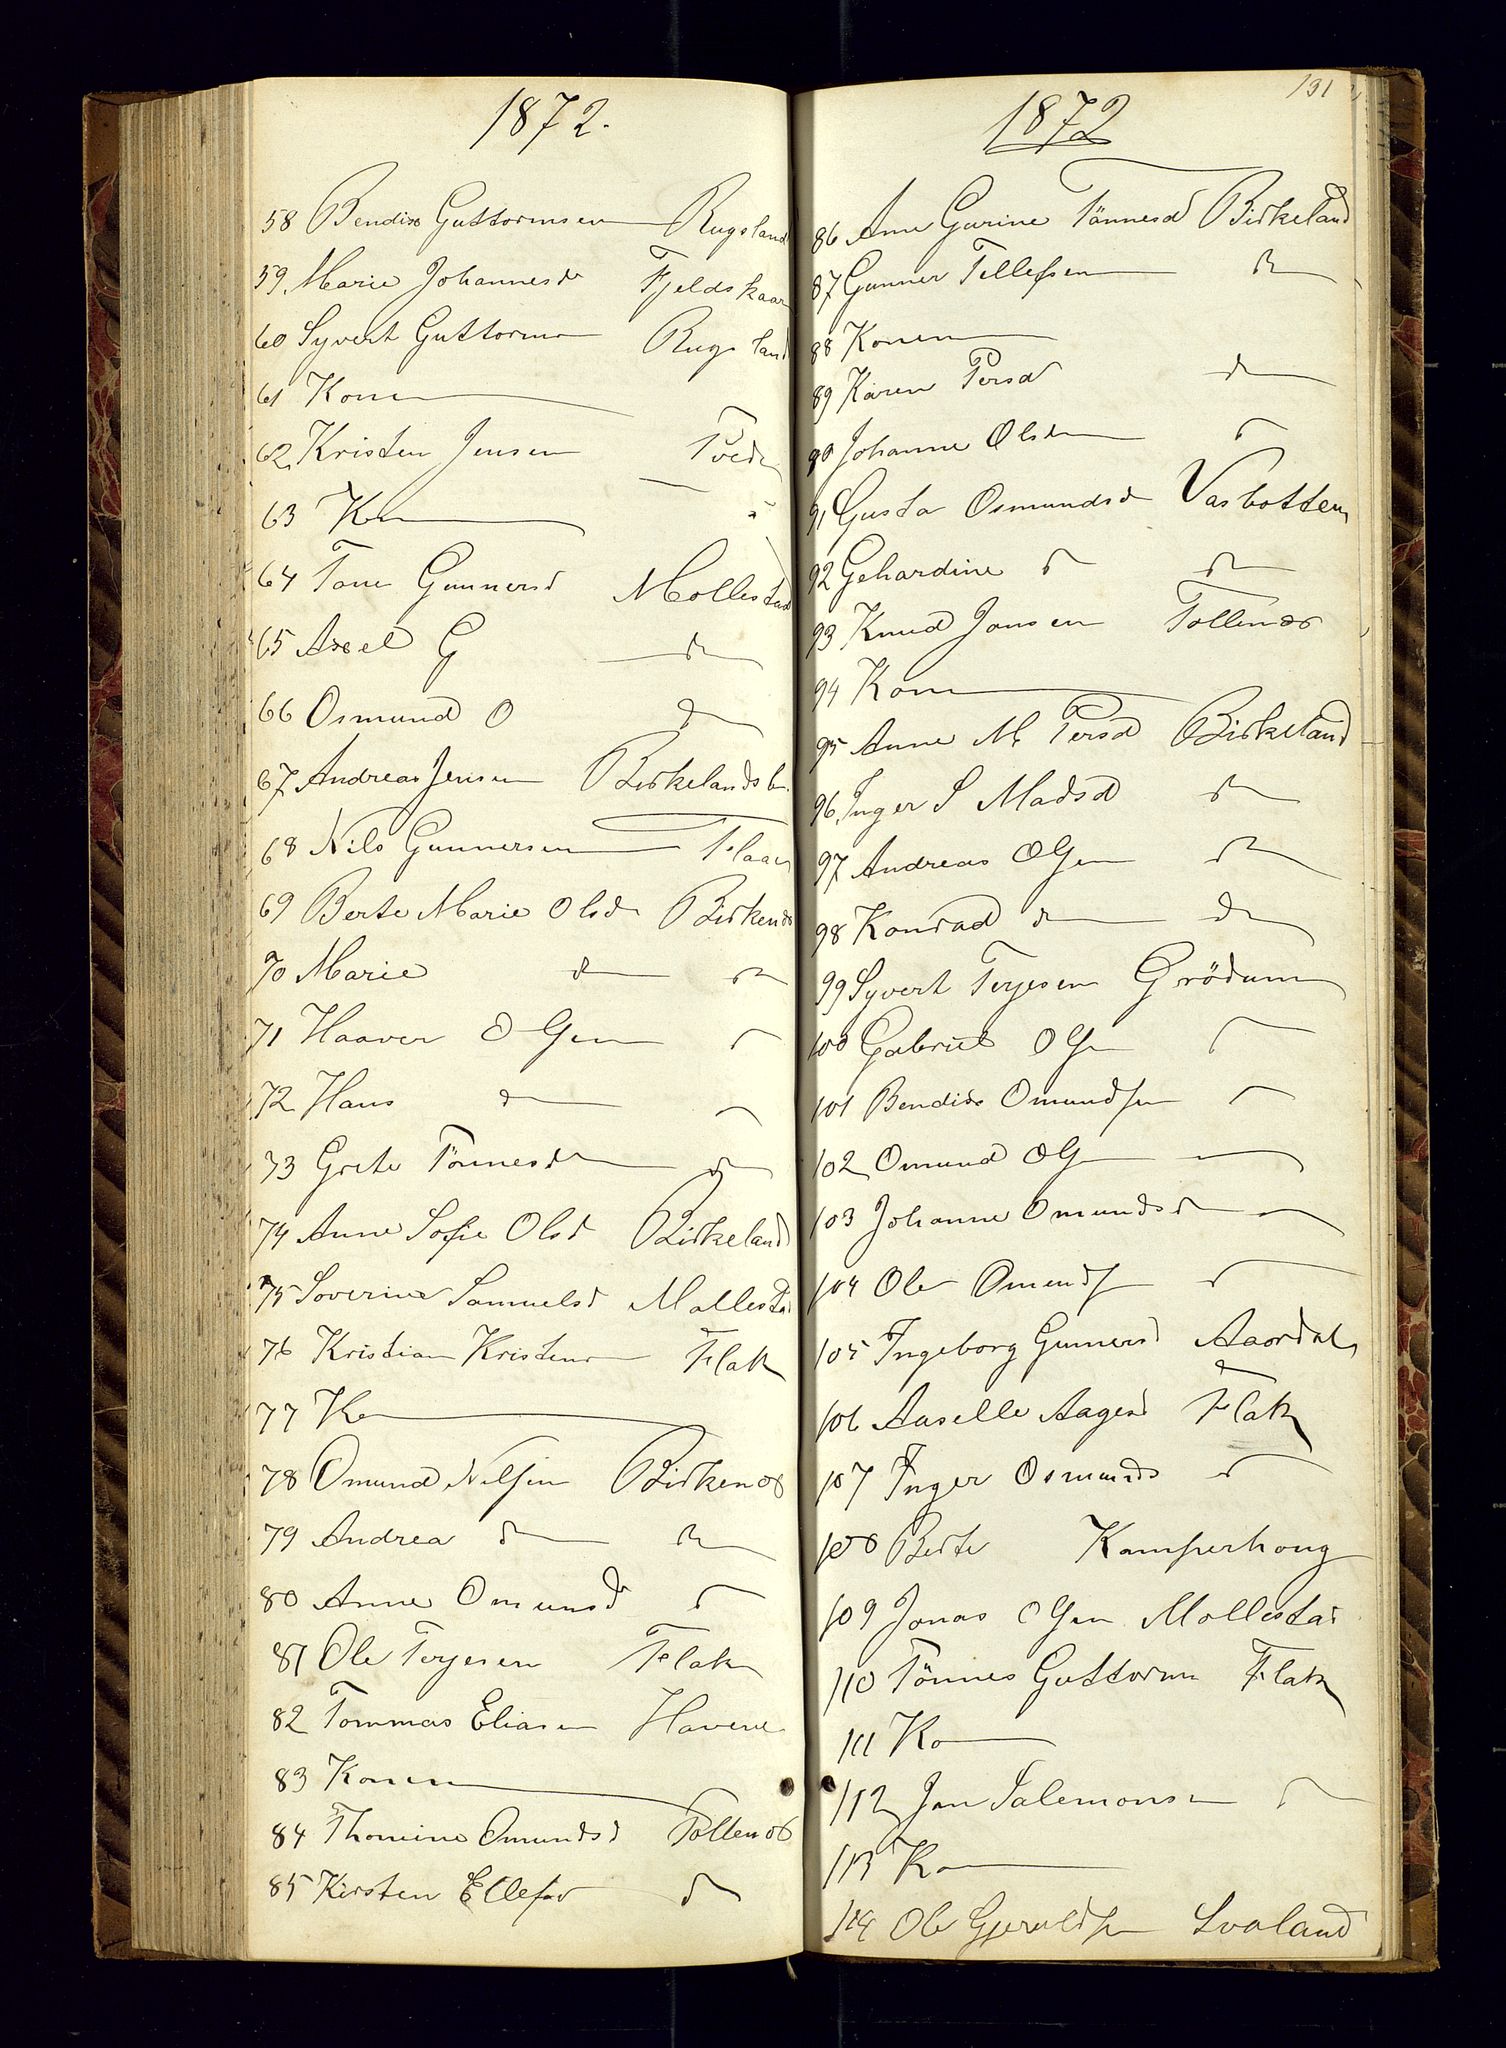 1872.
58 Bendix Guttormsen Rugsland
59 Marie Johannesd Fjeldskaar
60 Syvert Guttorms Rugsland
61 Konen
62 Kristen Jensen Tvede
63 Kon
64 Tone Gunnersd Mollestad
65 Axel G do
66 Osmund O do
67 Andreas Jensen Birkelandsb.
68 Nils Gunnersen Flaa
69 Berte Marie Olsd Birkenes
70 Marie do do
71 Haaver Olsen do
72 Hans do
73 Grete Tönnesd do
74 Anne Sofie Olsd Birkeland
75 Soverine Samuelsd Mollestad
76 Kristian Kristens Flak
77 Ko
78 Omund Nilsen Birkenes
79 Andrea do do
80 Anne Omunsd do
81 Ole Terjesen Flak
82 Tommas Eliasen Havene
83 Konen
84 Thomine Omundsd Tollenes
85 Kirsten Ellefsd do
131
1872
86 Ane Gurine Tönnesd Birkeland
87 Gunner Tellefsen do
88 Konen
89 Karen Persd do
90 Johanne Olsd do
91 Gusta Osmundsd Vasbotten
92 Gehardine do do
93 Knud Jonsen Tollenes
94 Kone
95 Anne M. Persd Birkeland
96 Inger S Madsd do
97 Andreas Olsen do
98 Konrad do do
99 Syvert Terjesen Grödum
100 Gabriel Ols do
101 Bendix Omundsen
102 Omund Ols
103 Johanne Omundsd
104 Ole Omunds do
105 Ingeborg Gunnersd Aardal
106 Aaselle Aagesd Flak
107 Inger Osmunds do
108 Berte Kamperhoug
109 Jonas Olsen Mollestad
110 Tönnes Guttorm Flak
111 Ko
112 Jon Salemonsen do
113 Ko
114 Ole Gjeruldsen Svaland